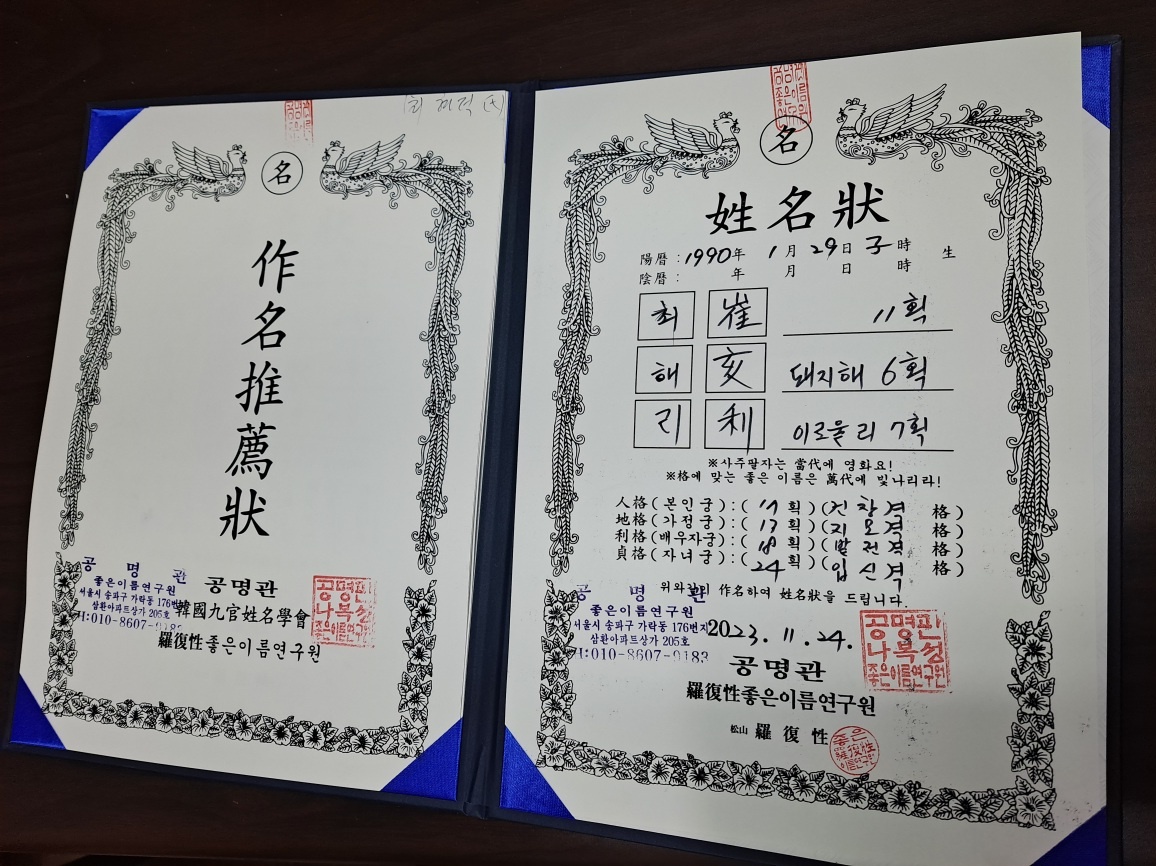 名
作名推薦狀
공명관
좋은이름연구원
서울시 송파구 가락동 176번지
삼환아파트상가 205호
공명관
韓國九官姓名學會
羅復性좋은이름연구원
공명관
나복성
좋은이름연구원
名
姓名狀
陽曆: 1990年 1月 29日 子時 生
陰曆: 年 月 日 時
최 崔 11획
해 亥 돼지해 6획
리 利 이로울리 7획
※사주팔자는 當代에 영화요!
※格에 맞는 좋은 이름은 萬代에 빛나리라!
人格(본인궁):(17획)(건창격 格)
地格(가정궁):(13획)(지모격 格)
利格(배우자궁):(18획)(발전격 格)
貞格(자녀궁):(24획)(입신격 格)
위와같이 作名하여 姓名狀을 드립니다.
공명관
좋은이름연구원
서울시 송파구 가락동 176번지
삼환아파트상가 205호
H:010-8607-9183
2023. 11. 24.
공명관
羅復性좋은이름연구원
松山 羅復性
공명관
나복성
좋은이름연구원